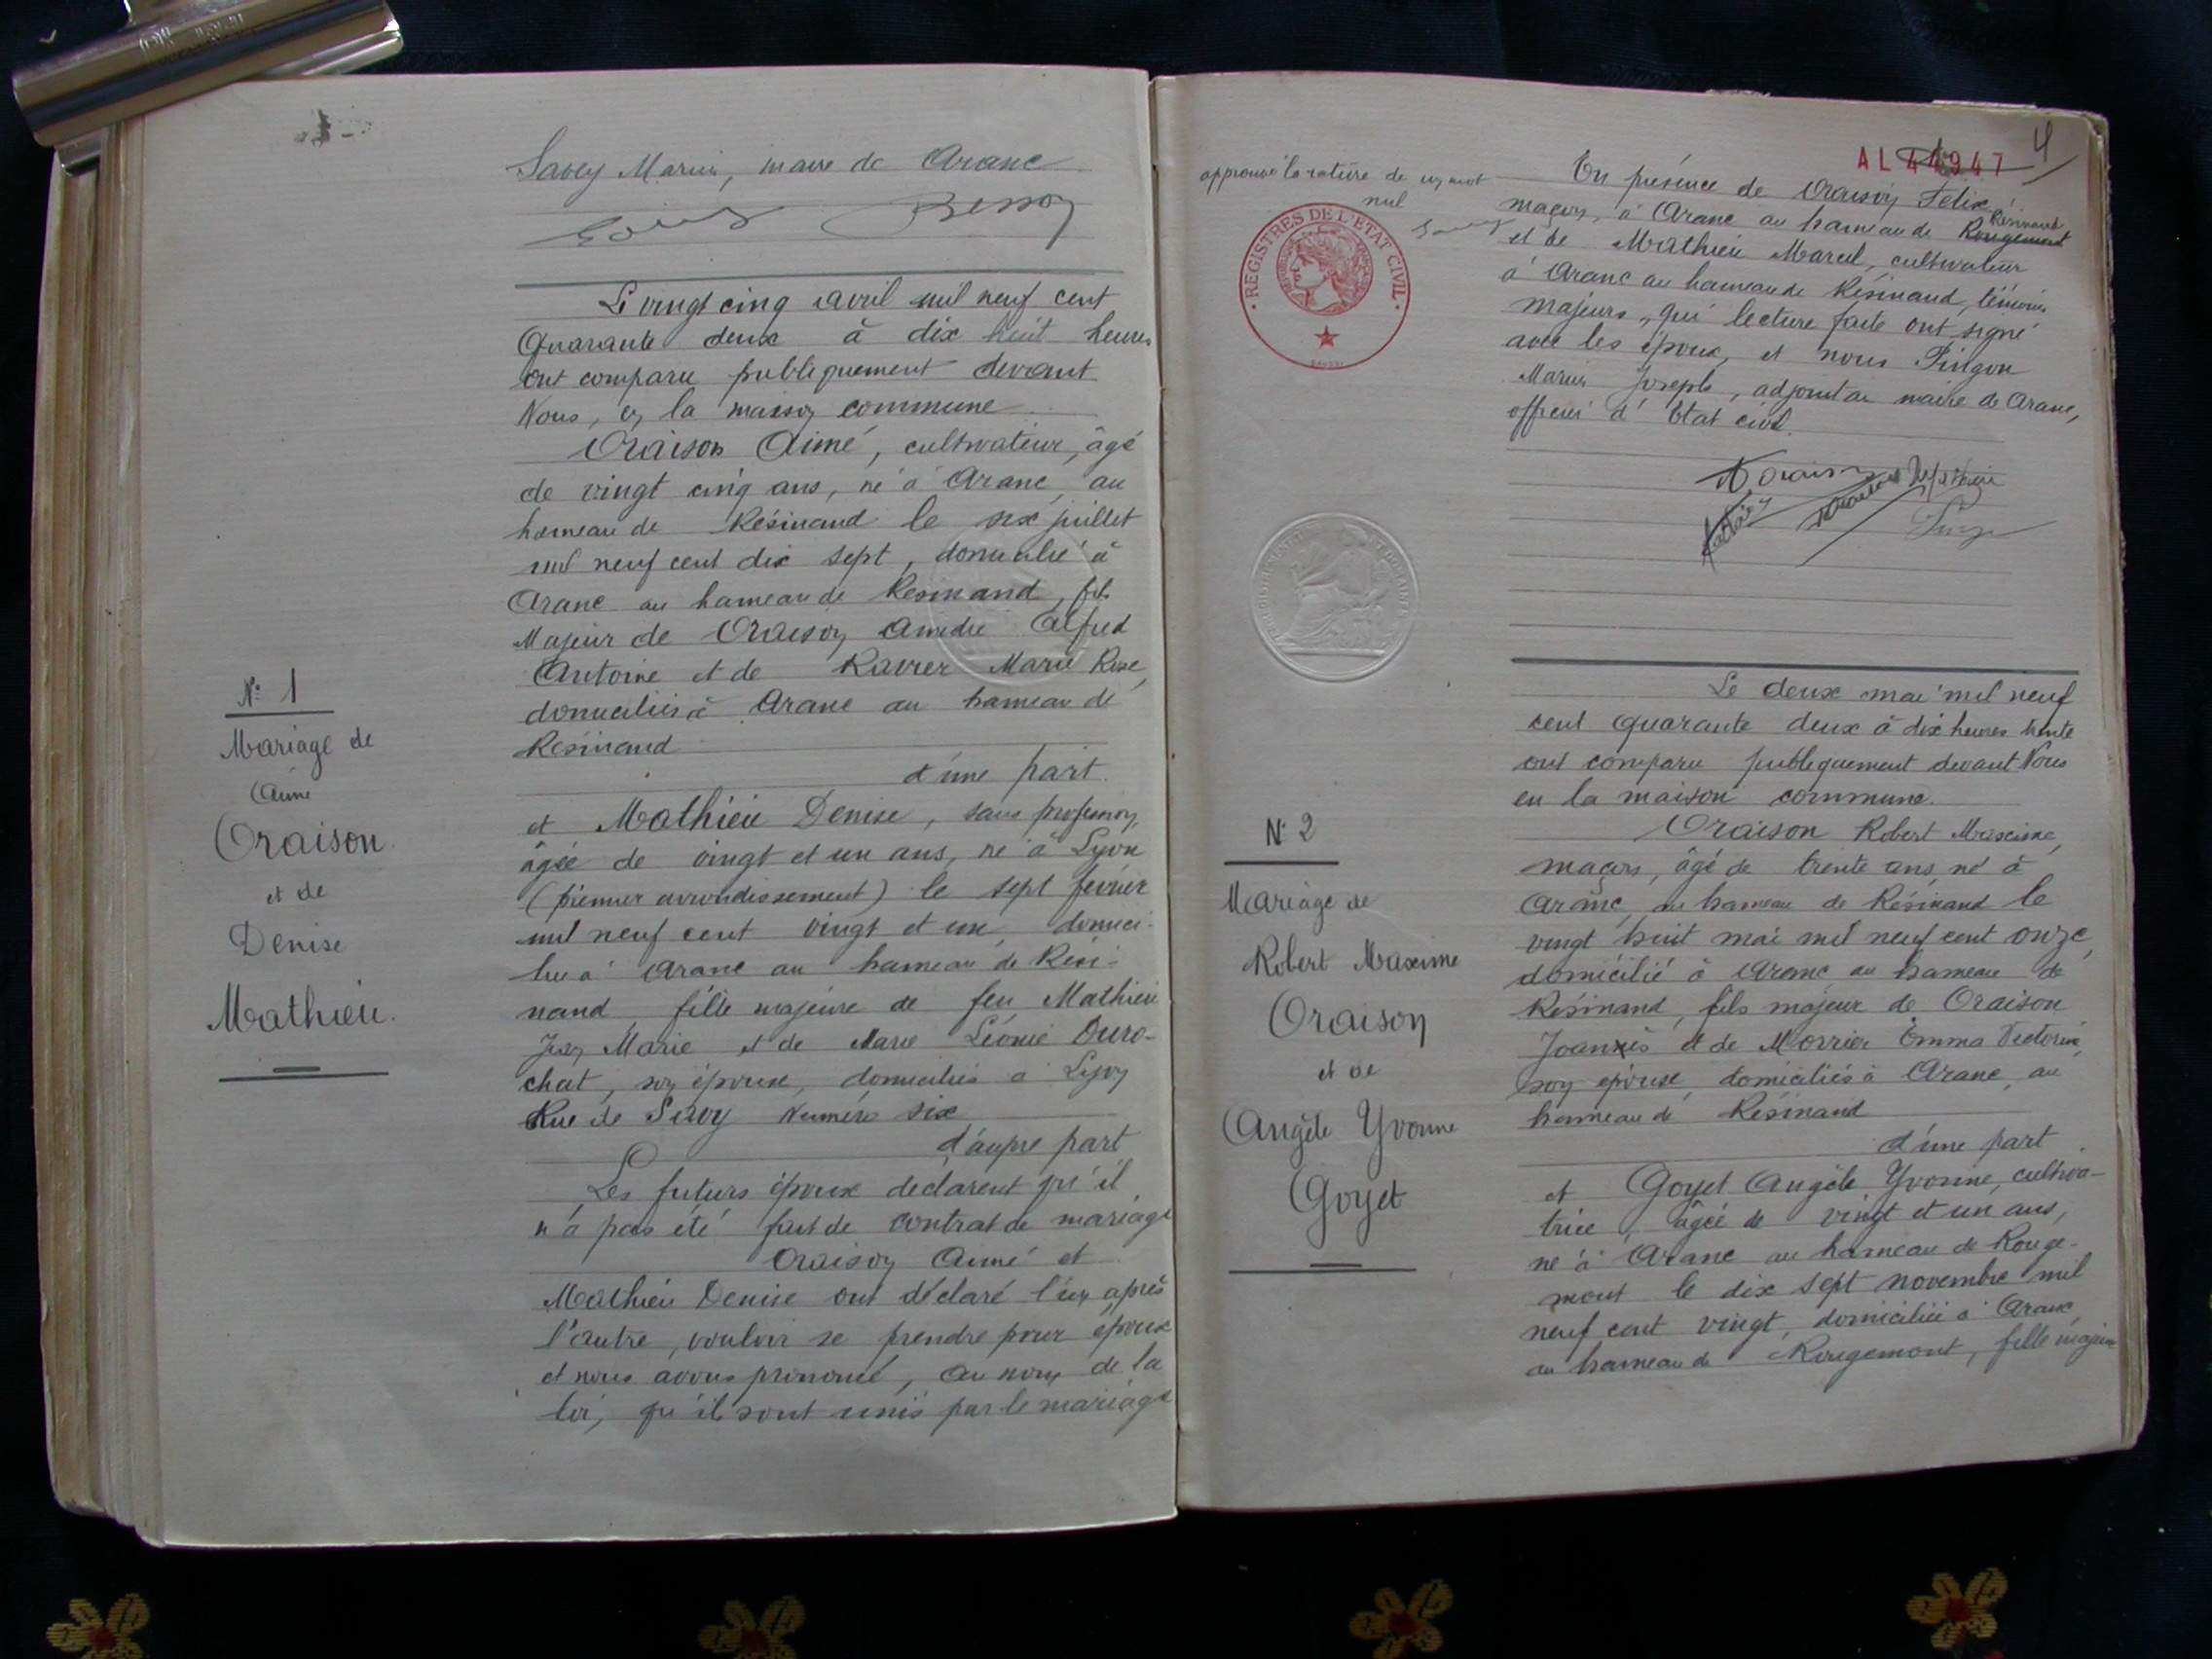 Savey Marius, maire de Aranc
Le vingt cinq avril mil neuf cent
Quarante deux à dix huit heures
ont comparu publiquement devant
Nous, en la maison commune
Oraison Aimé, cultivateur, âgé
de vingt cinq ans, né à Aranc, au
hameau de Résinand le six juillet
mil neuf cent dix sept, domicilié à
Aranc au hameau de Résinand, fils
Majeur de Oraison Amédée Alfred
Antoine et de Ravier Marie Rose,
domiciliés à Aranc au hameau de
Résinand
d'une part.
et Mathieu Denise, sans profession,
âgée de vingt et un ans, né à Lyon
(premier arrondissement) le sept février
mil neuf cent vingt et un, domici-
liée à Aranc au hameau de Rési-
nand, fille majeure de feu Mathieu
Marie et de Marie Léonie Duro-
chat, son épouse, domiciliés à Lyon
Rue de Savoy Numéro six
d'autre part
Les futurs époux déclarent qu'il
n'a pas été fait de contrat de mariage
Oraison Aimé et
Mathieu Denise ont déclaré l'un après
l'autre, vouloir se prendre pour époux
et nous avons prononcé, au nom de la
loi, qu'ils sont unis par le mariage
N° 1
Mariage de
Aimé
Oraison
et de
Denise
Mathieu.
AL 44947
4
approuvé la rature de un mot
nul
REGISTRES DE L'ÉTAT CIVIL
En présence de Oraison Félix
Résinand
maçon, à Aranc au hameau de Rougemont
et de Mathieu Marcel, cultivateur
à Aranc au hameau de Résinand, témoins
majeurs, qui lecture faite ont signé
avec les époux, et nous Pingon
Marius Joseph, adjoint au maire de Aranc,
officier d'Etat civil.
Le deux mai mil neuf
cent quarante deux à dix heures trente
ont comparu publiquement devant Nous
en la maison commune.
Oraison Robert Maxime,
maçon, âgé de trente ans, né à
Aranc, au hameau de Résinand le
vingt huit mai mil neuf cent onze,
domicilié à Aranc au hameau de
Résinand, fils majeur de Oraison
Joannès et de Morrier Emma Victorine,
son épouse, domiciliés à Aranc, au
hameau de Résinand
d'une part
et Goyet Angèle Yvonne, cultiva-
trice, âgée de vingt et un ans,
né à Aranc au hameau de Rouge-
mont le dix sept novembre mil
neuf cent vingt, domiciliée à Aranc,
au hameau de Rougemont, fille majeure
N° 2
Mariage de
Robert Maxime
Oraison
et de
Angèle Yvonne
Goyet